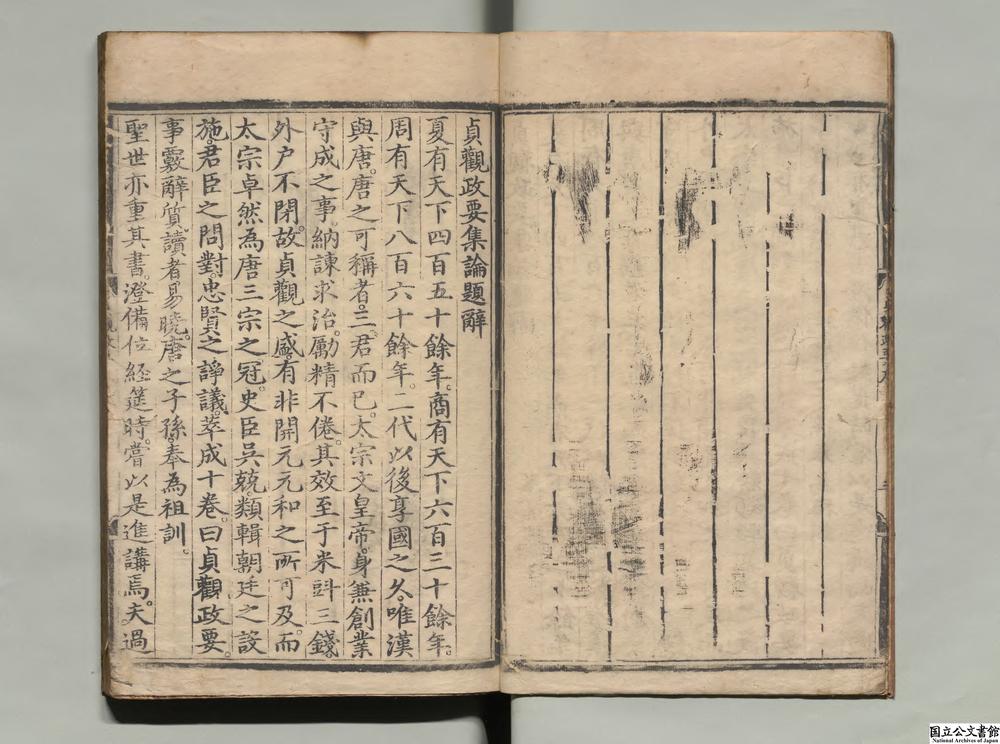 貞觀政要集論題辭
夏有天下四百五十餘年。商有天下六百三十餘年。
周有天下八百六十餘年。二代以後享國之久。唯漢
與唐。唐之可稱者。三君而已。太宗文皇帝。身兼創業
守成之事。納諫求治。勵精不倦。其效至于米斗三錢。
外戶不閉。故貞觀之盛。有非開元元和之所可及。而
太宗卓然為唐三宗之冠。史臣吳兢。類輯朝廷之設
施。君臣之問對。忠賢之諍議。萃成十卷。曰貞觀政要。
事覈辭質。讀者易曉。唐之子孫。奉為祖訓。
聖世亦重其書。澄備位經筵時。嘗以是進講焉。夫過
国立公文書館
National Archives of Japan